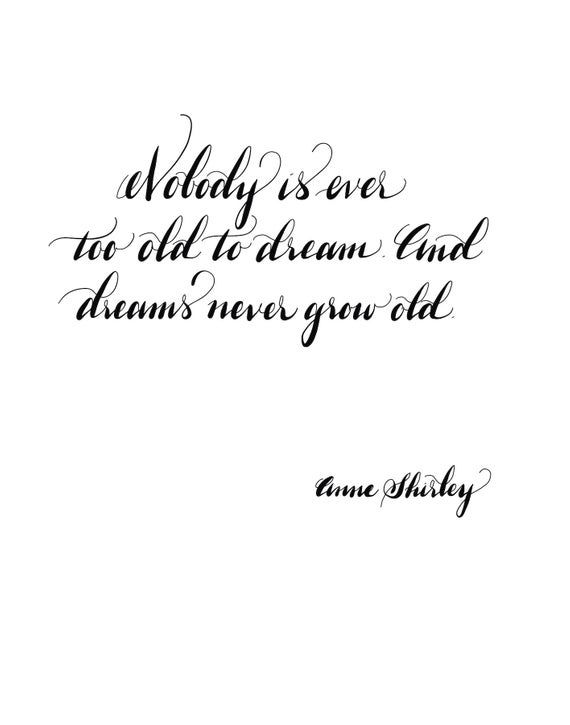 Nobody is ever
too old to dream. And
dreams never grow old.
Anne Shirley